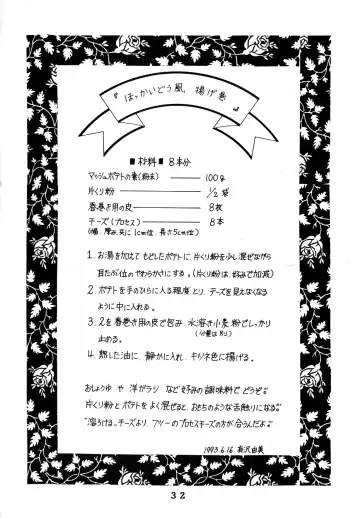 『ほっかいどう風 揚げ巻』
■材料■ 8本分
マッシュポテトの素(粉末) ―― 100g
片くり粉 ―― 1/2袋
春巻き用の皮 ―― 8枚
チーズ(プロセス) ―― 8本
(幅、厚み共に1cm位、長さ5cm位)
1. お湯を加えてもどしたポテトに、片くり粉を少し混ぜながら
耳たぶ位のやわらかさにする。(片くり粉は、好みで加減)
2. ポテトを手のひらに入る程度とり、チーズを見えなくなる
ように中に入れる。
3. 2を春巻き用の皮で包み、水溶き小麦粉でしっかり
(分量は別)
止める。
4. 熱した油に、静かに入れ、キツネ色に揚げる。
おしょうゆや洋ガラシなど好みの調味料でどうぞ。
片くり粉とポテトをよく混ぜると、おもちのような舌触りになる。
"溶ろける。チーズより、フツーのプロセスチーズの方が合うんだよ。"
1993.6.16 沢由美
32